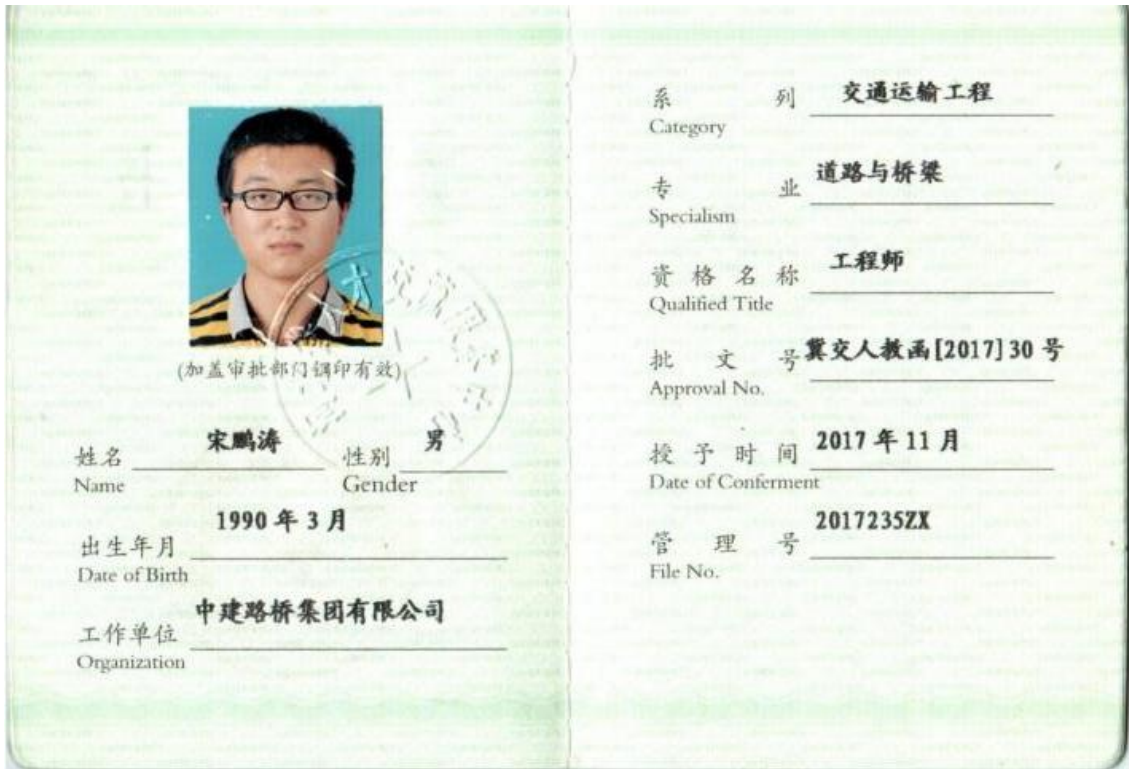 (加盖审批部门钢印有效)
姓名 宋鹏涛 性别 男
Name Gender
出生年月 1990 年 3 月
Date of Birth
工作单位 中建路桥集团有限公司
Organization
系列 交通运输工程
Category
专业 道路与桥梁
Specialism
资格名称 工程师
Qualified Title
批文号 冀交人教函[2017]30 号
Approval No.
授予时间 2017 年 11 月
Date of Conferment
管理号 2017235ZX
File No.